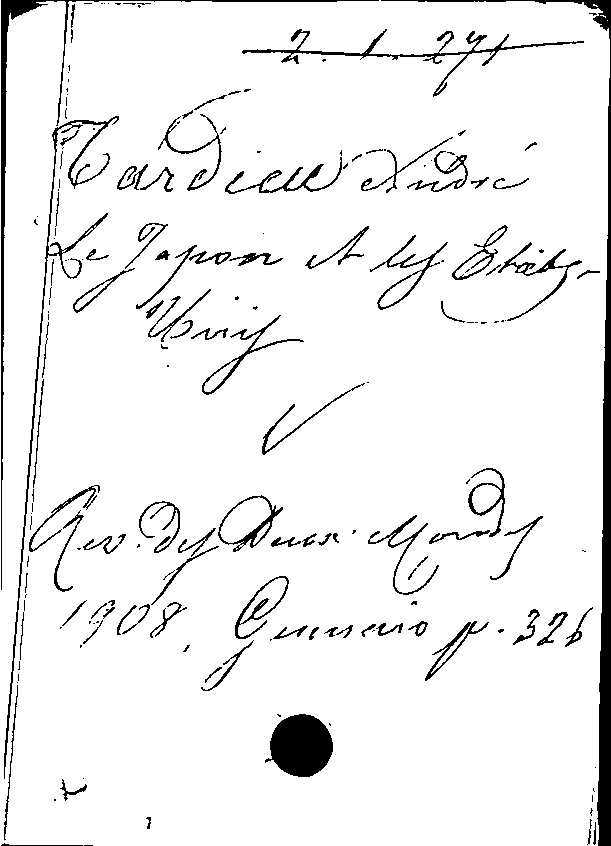 2. 1. 271
Tardieu André
Le Japon et les Etats-
Unis
Rev. des Deux. Mondes
1908, Gennaio p. 326